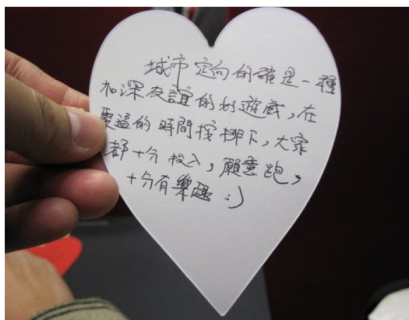 城市定向的確是一種
加深友誼的好遊戲,在
緊逼的時間按排下,大家
都十分投入,願意跑,
十分有樂趣 :)